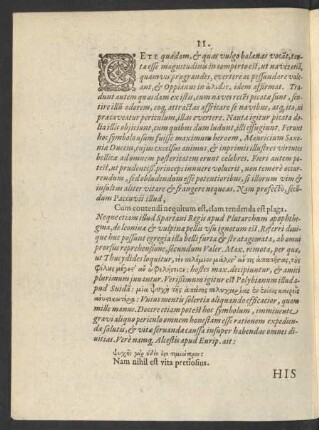 II.
CETE quædam, & quas vulgo balænas vocāt, tan-
ta esse magnitudine in comperto est, ut naves etiā,
quamvis prægrandes, evertere ac pessundare vale-
ant, & Oppianus in idem afirmat. Tra-
dunt autem quasdam ex istis, cum naves recēs picata sunt, sen-
tire illū odorem, eoq́ attractas assilire se navibus, atq́, ita, ni
præcaveatur periculum, illas evertere. Nauta igitur picata do-
lia illis objiciunt, cum quibus dum ludunt, illi effugiunt. Ferunt
hoc symbolum suum fuisse maximum heroem, Mauricium Saxo-
niæ Ducem, cujus excelsus animus, & inprimis illustres virtutes
bellicæ ad omnem posteritatem erunt celebres. Fieri autem po-
test, ut prudentiss. princeps innuere voluerit, non temerè occur-
rendum, sed obludendum esse potentioribus, si illorum vim &
insultus aliter vitare & frangere nequeas. Nam profectò, secū-
dum Pacuvii illud,
Cum contendi nequitum est, clam tendenda est plaga.
Neque etiam illud Spartani Regis apud Plutarchum apophtheg-
ma, de leonina & vulpina pelli usu ignotum est. Referri deni-
que huc possunt egregia illa belli furta & stratagemata, ab omni
prorsus reprehensione, secundum Valer. Max. remota, per quæ,
ut Thucydides loquitur, τὸν πολέμιον μάλιστ' ἄν τις ἀπατήσας, τὸς
φίλως μέγιστ' ἂν ὠφελήσειε: hostes max. decipiuntur, & amici
plerimum juvantur. Verissimùm igitur est Polybianum illud a-
pud Suidā: μία ψυχὴ τῆς ἁπάσης πολυχειρίας ἐν ἐνίοις καιροῖς
Unius mentis solertia aliquando efficacior, quam
mille manus. Docere etiam potest hoc symbolum, imminente
gravi aliquo periculo omnem honestam esse rationem expedien-
dæ salutis, & vita servandæ caussa insuper habendas omnes di-
vitias. Verè namq́, Alcestis apud Eurip. ait:
ψυχῆς γὰρ ἐδέν ἐστι τιμιώτερον:
Nam nihil est vita pretiosius.
HIS